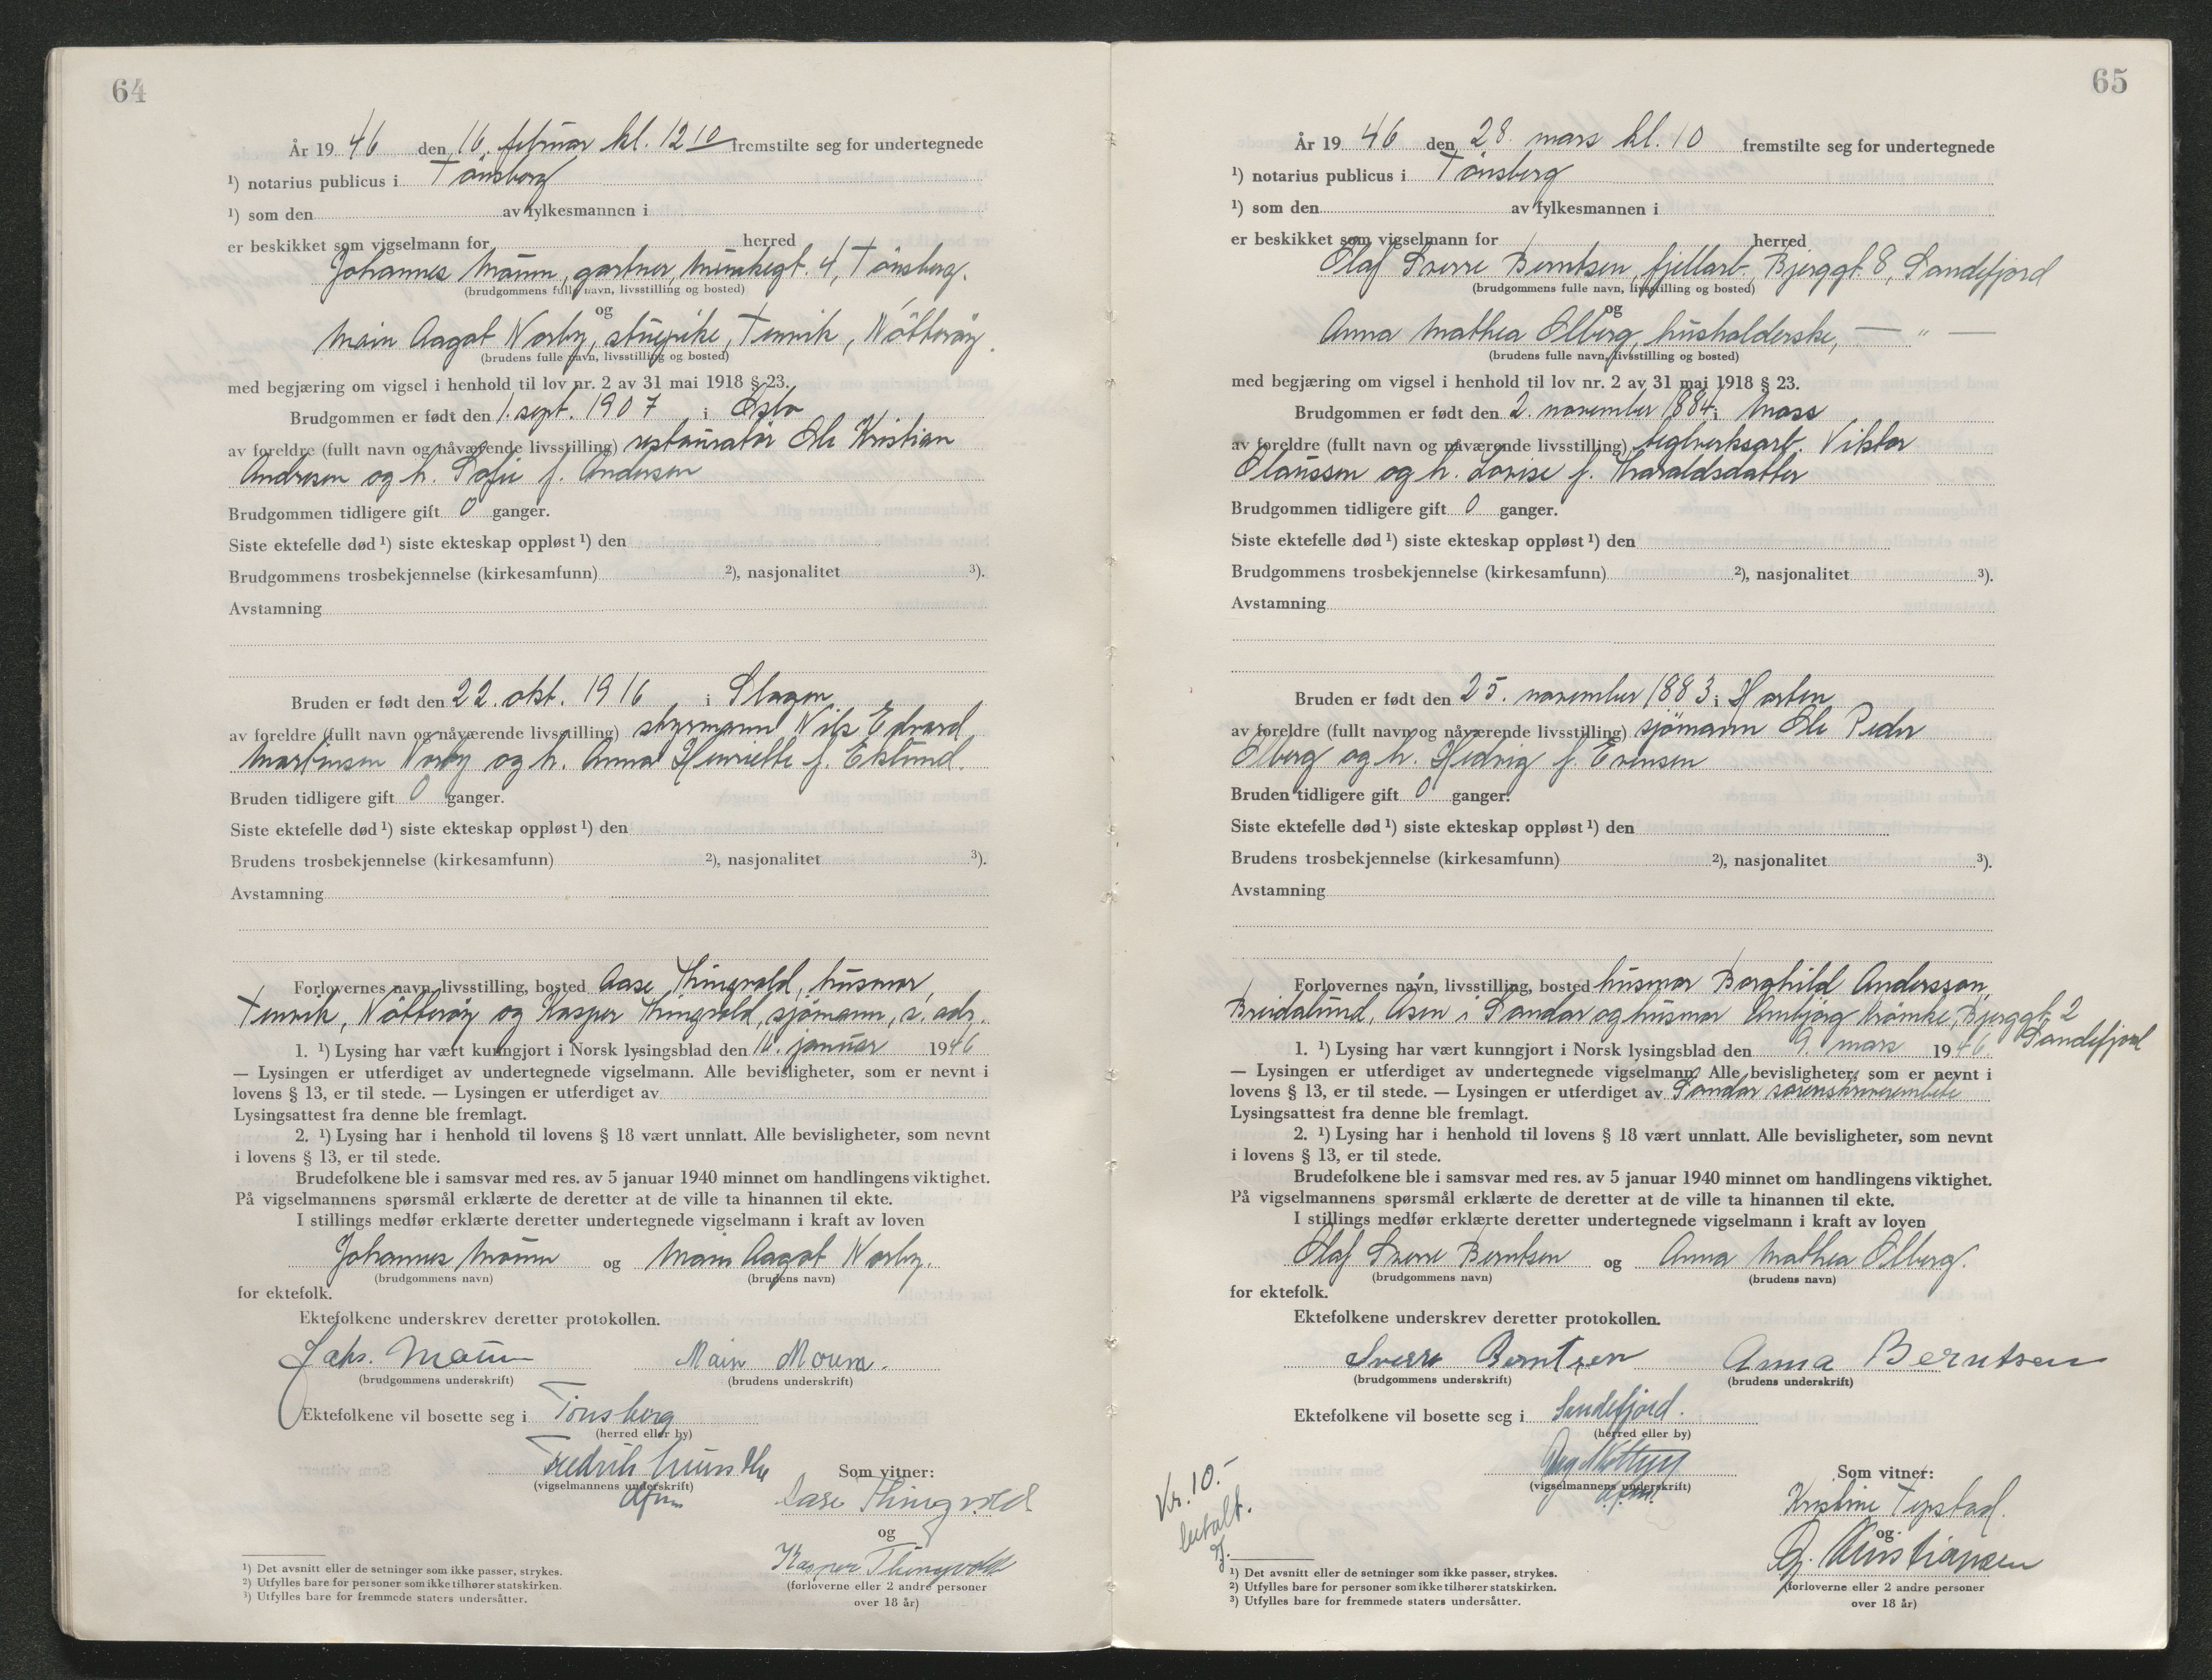 64
År 19 46 den 16. februar kl. 12 10 fremstilte seg for undertegnede
¹) notarius publicus i Tönsberg
¹) som den av fylkesmannen i
er beskikket som vigselmann for herred
Johannes Mourn, gartner, Munkegt. 4, Tönsberg.
(brudgommens fulle navn, livsstilling og bosted)
og
Main Aagot Norby, stuepike, Tenvik, Nötteröy.
(brudens fulle navn, livsstilling og bosted)
med begjæring om vigsel i henhold til lov nr. 2 av 31 mai 1918 § 23.
Brudgommen er født den 1. sept. 1907 i Oslo
av foreldre (fullt navn og nåværende livsstilling) restauratör Ole Kristian
Andresen og h. Sofie f. Andersen
Brudgommen tidligere gift 0 ganger.
Siste ektefelle død ¹) siste ekteskap oppløst ¹) den
Brudgommens trosbekjennelse (kirkesamfunn) ²), nasjonalitet ³).
Avstamning
Bruden er født den 22. okt. 1916 i Slagen
av foreldre (fullt navn og nåværende livsstilling) styrmann Nils Edvard
Martinsen Norby og h. Anna Henriette f. Eklund.
Bruden tidligere gift 0 ganger.
Siste ektefelle død ¹) siste ekteskap oppløst ¹) den
Brudens trosbekjennelse (kirkesamfunn) ²), nasjonalitet ³).
Avstamning
Forlovernes navn, livsstilling, bosted Aase Thingvold, husmor,
Tenvik, Nötteröy og Kasper Thingvold, sjömann, s. adr.
1. ¹) Lysing har vært kunngjort i Norsk lysingsblad den 16. januar 1946
— Lysingen er utferdiget av undertegnede vigselmann. Alle bevisligheter, som er nevnt i
lovens § 13, er til stede. — Lysingen er utferdiget av
Lysingsattest fra denne ble fremlagt.
2. ¹) Lysing har i henhold til lovens § 18 vært unnlatt. Alle bevisligheter, som nevnt
i lovens § 13, er til stede.
Brudefolkene ble i samsvar med res. av 5 januar 1940 minnet om handlingens viktighet.
På vigselmannens spørsmål erklærte de deretter at de ville ta hinannen til ekte.
I stillings medfør erklærte deretter undertegnede vigselmann i kraft av loven
Johannes Mourn og Main Aagot Norby.
(brudgommens navn) (brudens navn)
for ektefolk.
Ektefolkene underskrev deretter protokollen.
Johs. Mourn Main Mourn.
(brudgommens underskrift) (brudens underskrift)
Ektefolkene vil bosette seg i Tönsberg
(herred eller by)
Fredrik Munthe Som vitner:
(vigselmannens underskrift)
Aase Thingvold
og
Kasper Thingvold
(forloverne eller 2 andre personer
over 18 år)
¹) Det avsnitt eller de setninger som ikke passer, strykes.
²) Utfylles bare for personer som ikke tilhører statskirken.
³) Utfylles bare for fremmede staters undersåtter.
65
År 19 46 den 28. mars kl. 10 fremstilte seg for undertegnede
¹) notarius publicus i Tönsberg
¹) som den av fylkesmannen i
er beskikket som vigselmann for herred
Olaf Sverre Berntsen, fjellarb., Bjerggt. 8, Sandefjord
(brudgommens fulle navn, livsstilling og bosted)
og
Anna Mathea Olberg, husholderske, — " —
(brudens fulle navn, livsstilling og bosted)
med begjæring om vigsel i henhold til lov nr. 2 av 31 mai 1918 § 23.
Brudgommen er født den 2. november 1884 i Moss
av foreldre (fullt navn og nåværende livsstilling) teglverksarb. Viktor
Olaussen og h. Lovise f. Haraldsdatter
Brudgommen tidligere gift 0 ganger.
Siste ektefelle død ¹) siste ekteskap oppløst ¹) den
Brudgommens trosbekjennelse (kirkesamfunn) ²), nasjonalitet ³).
Avstamning
Bruden er født den 25. november 1883 i Horten
av foreldre (fullt navn og nåværende livsstilling) sjömann Ole Peder
Olberg og h. Hedvig f. Evensen
Bruden tidligere gift 0 ganger.
Siste ektefelle død ¹) siste ekteskap oppløst ¹) den
Brudens trosbekjennelse (kirkesamfunn) ²), nasjonalitet ³).
Avstamning
Forlovernes navn, livsstilling, bosted husmor Borghild Andersson,
Breidalund, Åsen i Sandar og husmor Bjerggt. 2
Sandefjord
1. ¹) Lysing har vært kunngjort i Norsk lysingsblad den 9. mars 1946
— Lysingen er utferdiget av undertegnede vigselmann. Alle bevisligheter, som er nevnt i
lovens § 13, er til stede. — Lysingen er utferdiget av Sandar sorenskriverembete
Lysingsattest fra denne ble fremlagt.
2. ¹) Lysing har i henhold til lovens § 18 vært unnlatt. Alle bevisligheter, som nevnt
i lovens § 13, er til stede.
Brudefolkene ble i samsvar med res. av 5 januar 1940 minnet om handlingens viktighet.
På vigselmannens spørsmål erklærte de deretter at de ville ta hinannen til ekte.
I stillings medfør erklærte deretter undertegnede vigselmann i kraft av loven
Olaf Sverre Berntsen og Anna Mathea Olberg.
(brudgommens navn) (brudens navn)
for ektefolk.
Ektefolkene underskrev deretter protokollen.
Sverre Berntsen Anna Berntsen
(brudgommens underskrift) (brudens underskrift)
Ektefolkene vil bosette seg i Sandefjord.
(herred eller by)
Som vitner:
(vigselmannens underskrift)
Kristine Tepstad.
og
Kristiansen
(forloverne eller 2 andre personer
over 18 år)
Kr. 10.-
betalt.
¹) Det avsnitt eller de setninger som ikke passer, strykes.
²) Utfylles bare for personer som ikke tilhører statskirken.
³) Utfylles bare for fremmede staters undersåtter.